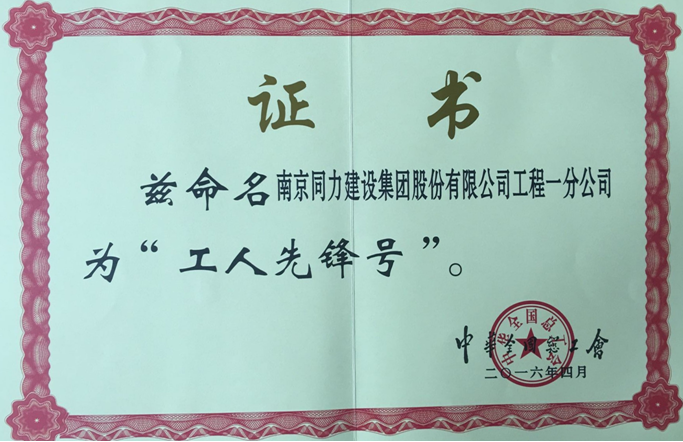 证书
兹命名南京同力建设集团股份有限公司工程一分公司
为“工人先锋号”。
中華全國總工會
中华全国总工会
二〇一六年四月